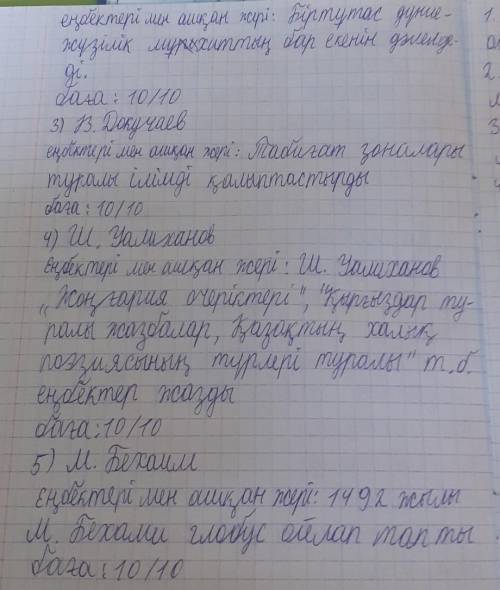 еңбектері мен ашқан жері: Біртұтас дүние-
жүзілік мұхиттың бар екенін дәлелде-
ді.
баға: 10/10
3) В. Докучаев
еңбектері мен ашқан жері: Табиғат зоналары
туралы ілімді қалыптастырды
баға: 10/10
4) Ш. Уалиханов
Еңбектері мен ашқан жері: Ш. Уалиханов
„Жоңғария очеріктері", "Қырғыздар ту-
ралы жазбалар, Қазақтың халық
поэзиясының түрлері туралы" т.б.
еңбектер жазды
баға: 10/10
5) М. Бехаим
Еңбектері мен ашқан жері: 1492 жылы
М. Бехами глобус ойлап тапты
баға: 10/10
1.
2.
3